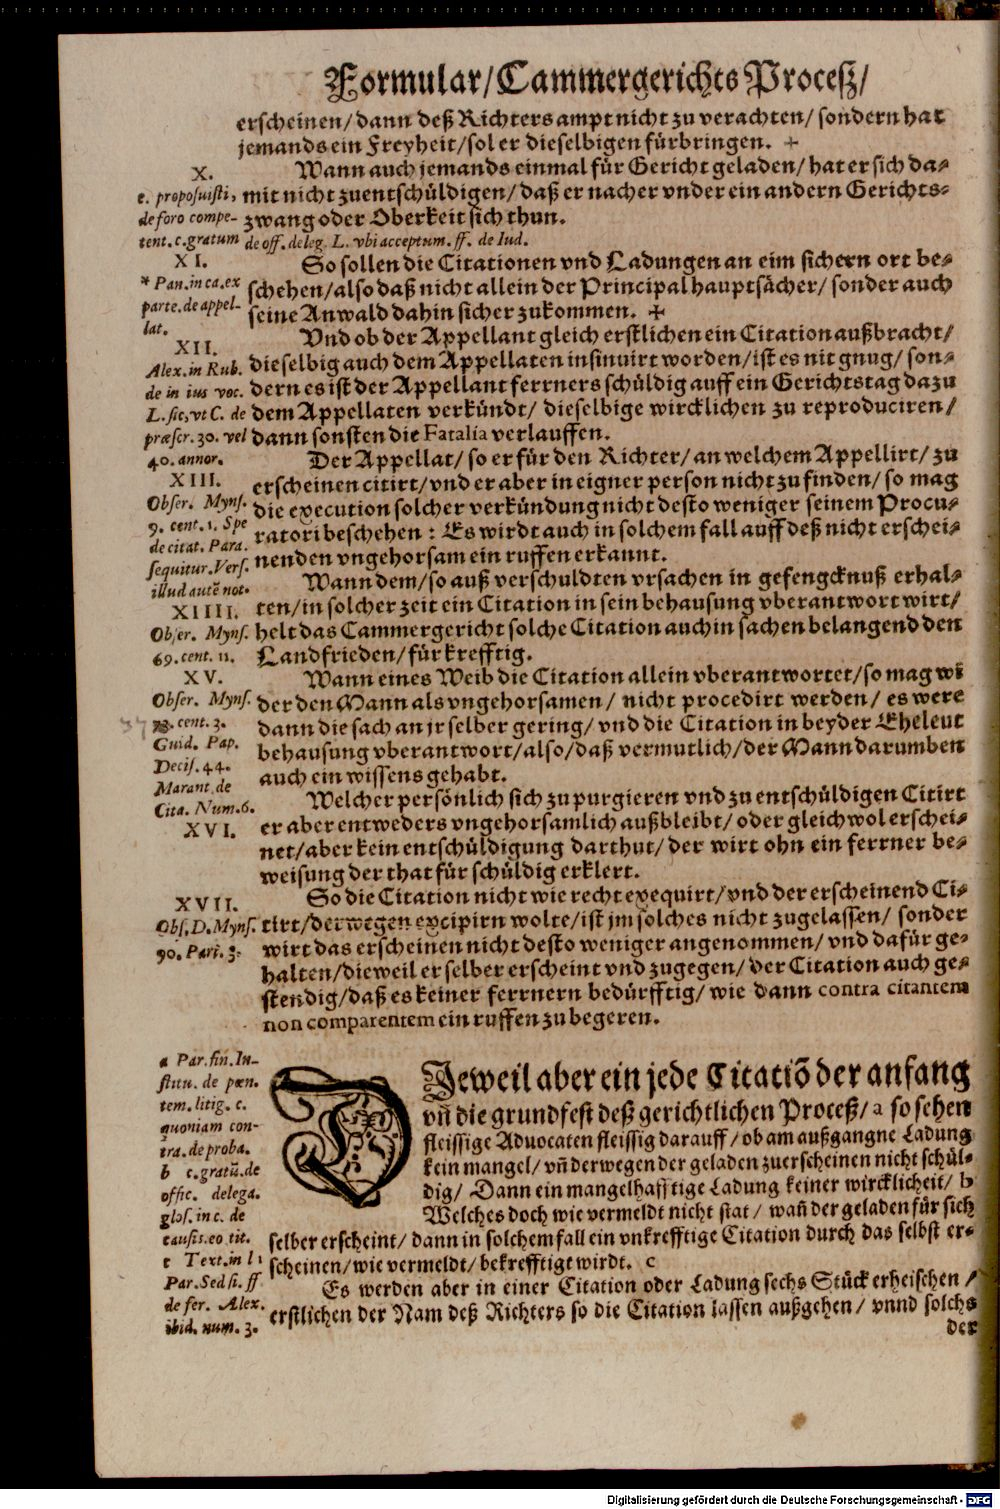 Formular/Cammergerichts Proceß/
erscheinen/dann deß Richters ampt nicht zu verachten/sondern hat
jemands ein Freyheit/sol er dieselbigen fürbringen. +
X.
Wann auch jemands einmal für Gericht geladen/hat er sich da-
e. proposuisti,
mit nicht zuentschüldigen/daß er nacher vnder ein andern Gerichts-
de foro compe-
zwang oder Oberkeit sich thun.
tent. c. gratum
de off. deleg. L. vbi acceptum. ff. de Iud.
XI.
So sollen die Citationen vnd Ladungen an eim sichern ort be-
* Pan. in ca. ex
schehen/also daß nicht allein der Principal hauptsächer/sonder auch
parte. de appel-
seine Anwald dahin sicher zukommen. ✠
lat.
Vnd ob der Appellant gleich erstlichen ein Citation außbracht/
XII.
Alex. in Rub.
dieselbig auch dem Appellaten insinuirt worden/ist es nit gnug/son-
de in ius voc.
dern es ist der Appellant ferrners schüldig auff ein Gerichtstag dazu
L. sic, vt C. de
dem Appellaten verkündt/ dieselbige wircklichen zu reproduciren/
præscr. 30. vel
dann sonsten die Fatalia verlauffen.
40. annor.
Der Appellat/so er für den Richter/an welchem Appellirt/zu
XIII.
erscheinen citirt/vnd er aber in eigner person nicht zu finden/so mag
Obser. Myns.
die execution solcher verkündung nicht desto weniger seinem Procu-
9. cent. 1. Spe
ratori beschehen : Es wirdt auch in solchem fall auff deß nicht erschei-
de citat. Para.
nenden vngehorsam ein ruffen erkannt.
sequitur. Vers.
illud autē not.
Wann dem/so auß verschuldten vrsachen in gefengcknuß erhal-
XIIII.
ten/in solcher zeit ein Citation in sein behausung vberantwort wirt/
Obser. Myns.
helt das Cammergericht solche Citation auch in sachen belangend den
69. cent. 11.
Landfrieden/für krefftig.
XV.
Wann eines Weib die Citation allein vberantwortet/so mag wi
Obser. Myns.
der den Mann als vngehorsamen / nicht procedirt werden/ es were
cent. 3.
dann die sach an jr selber gering/vnd die Citation in beyder Eheleut
Guid. Pap.
behausung vberantwort/also/daß vermutlich/der Mann darumben
Decis. 44.
auch ein wissens gehabt.
Marant. de
Cita. Num. 6.
Welcher persönlich sich zu purgieren vnd zu entschüldigen Citirt
XVI.
er aber entweders vngehorsamlich außbleibt/oder gleichwol erschei-
net/aber kein entschüldigung darthut/der wirt ohn ein ferrner be-
weisung der that für schüldig erklert.
So die Citation nicht wie recht exequirt/vnd der erscheinend Ci-
XVII.
Obs. D. Myns.
tirt/derwegen excipirn wolte/ist jm solches nicht zugelassen/ sonder
90. Part. 3.
wirt das erscheinen nicht desto weniger angenommen/vnd dafür ge-
halten/dieweil er selber erscheint vnd zugegen/der Citation auch ge-
stendig/daß es keiner ferrnern bedürfftig/wie dann contra citantem
non comparentem ein ruffen zu begeren.
a Par. fin. In-
stitu. de pœn.
tem. litig. c.
quoniam con-
tra. de proba.
b c. gratū. de
offic. delega.
glos. in c. de
causis. eo tit.
c Text. in l.
Par. Sed si. ff.
de fer. Alex.
ibid. num. 3.
DJeweil aber ein jede Citatiō der anfang
vn̄ die grundfest deß gerichtlichen Proceß/a so sehen
fleissige Aduocaten fleissig darauff/ob am außgangne Ladung
kein mangel/vn̄ derwegen der geladen zuerscheinen nicht schül-
dig/ Dann ein mangelhafftige Ladung keiner wircklicheit/ b
Welches doch wie vermeldt nicht stat/ wan̄ der geladen für sich
selber erscheint/dann in solchem fall ein vnkrefftige Citation durch das selbst er-
scheinen/wie vermeldt/bekrefftigt wirdt. c
Es werden aber in einer Citation oder Ladung sechs Stück erheischen /
erstlichen der Nam deß Richters so die Citation lassen außgehen/ vnnd solchs
der
Digitalisierung gefördert durch die Deutsche Forschungsgemeinschaft - DFG